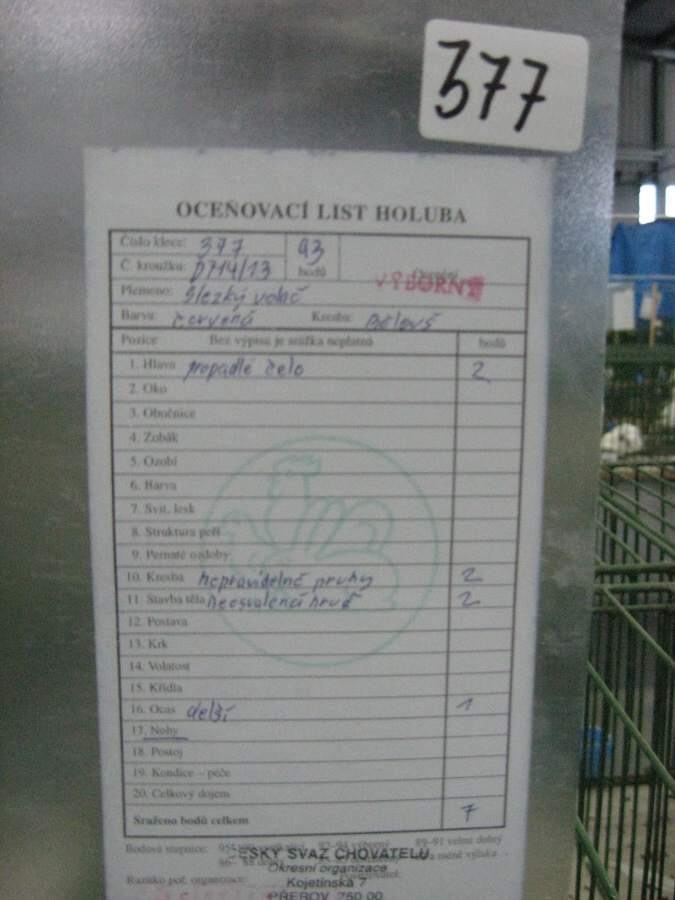 377
OCEŇOVACÍ LIST HOLUBA
Číslo klece: 377 93
Č. kroužku: D714/13 bodů Ocenění
VÝBORNÝ
Plemeno: Slezký voláč
Barva: červená Kresba: Bělouš
Pozice Bez výpisu je srážka neplatná bodů
1. Hlava propadlé čelo 2
2. Oko
3. Obočnice
4. Zobák
5. Ozobí
6. Barva
7. Svit, lesk
8. Struktura peří
9. Pernaté ozdoby
10. Kresba nepravidelné pruhy 2
11. Stavba těla neosvalená hruď 2
12. Postava
13. Krk
14. Volatost
15. Křídla
16. Ocas delší 1
17. Nohy
18. Postoj
19. Kondice – péče
20. Celkový dojem
Sraženo bodů celkem 7
Bodová stupnice: 92–94 výborný 89–91 velmi dobrý
ČESKÝ SVAZ CHOVATELŮ
Okresní organizace
Razítko poř. organizace:
Kojetínská 7
PŘEROV 750 00